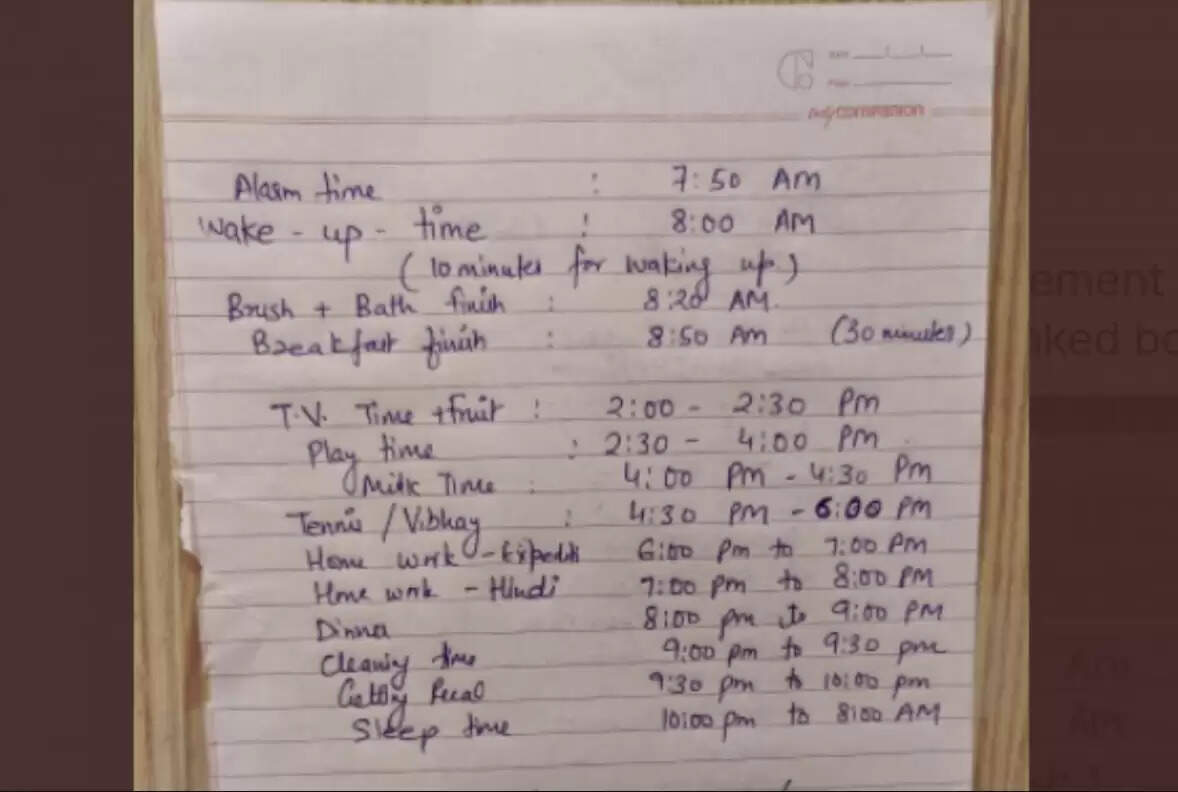 mycompanion
Alarm time : 7:50 AM
Wake - up - time : 8:00 AM
(10 minutes for waking up)
Brush + Bath finish : 8:20 AM.
Breakfast finish : 8:50 AM (30 minutes)
T.V. Time + fruit : 2:00 - 2:30 PM
Play time : 2:30 - 4:00 PM
Milk Time : 4:00 PM - 4:30 PM
Tennis / Vibhav : 4:30 PM - 6:00 PM
Home work - 6:00 PM to 7:00 PM
Home work - Hindi 7:00 pm to 8:00 PM
Dinner 8:00 pm to 9:00 PM
Cleaning time 9:00 pm to 9:30 pm
Getting 9:30 pm to 10:00 pm
Sleep time 10:00 pm to 8:00 AM
ement
ked bo
Am